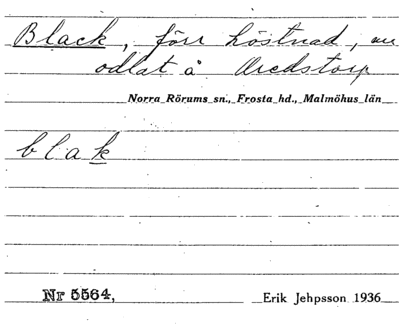 Black, förr höstnad, nu
odlat å Aredstorp
Norra Rörums sn., Frosta hd., Malmöhus län
blak
Nr 5564,
Erik Jehpsson 1936